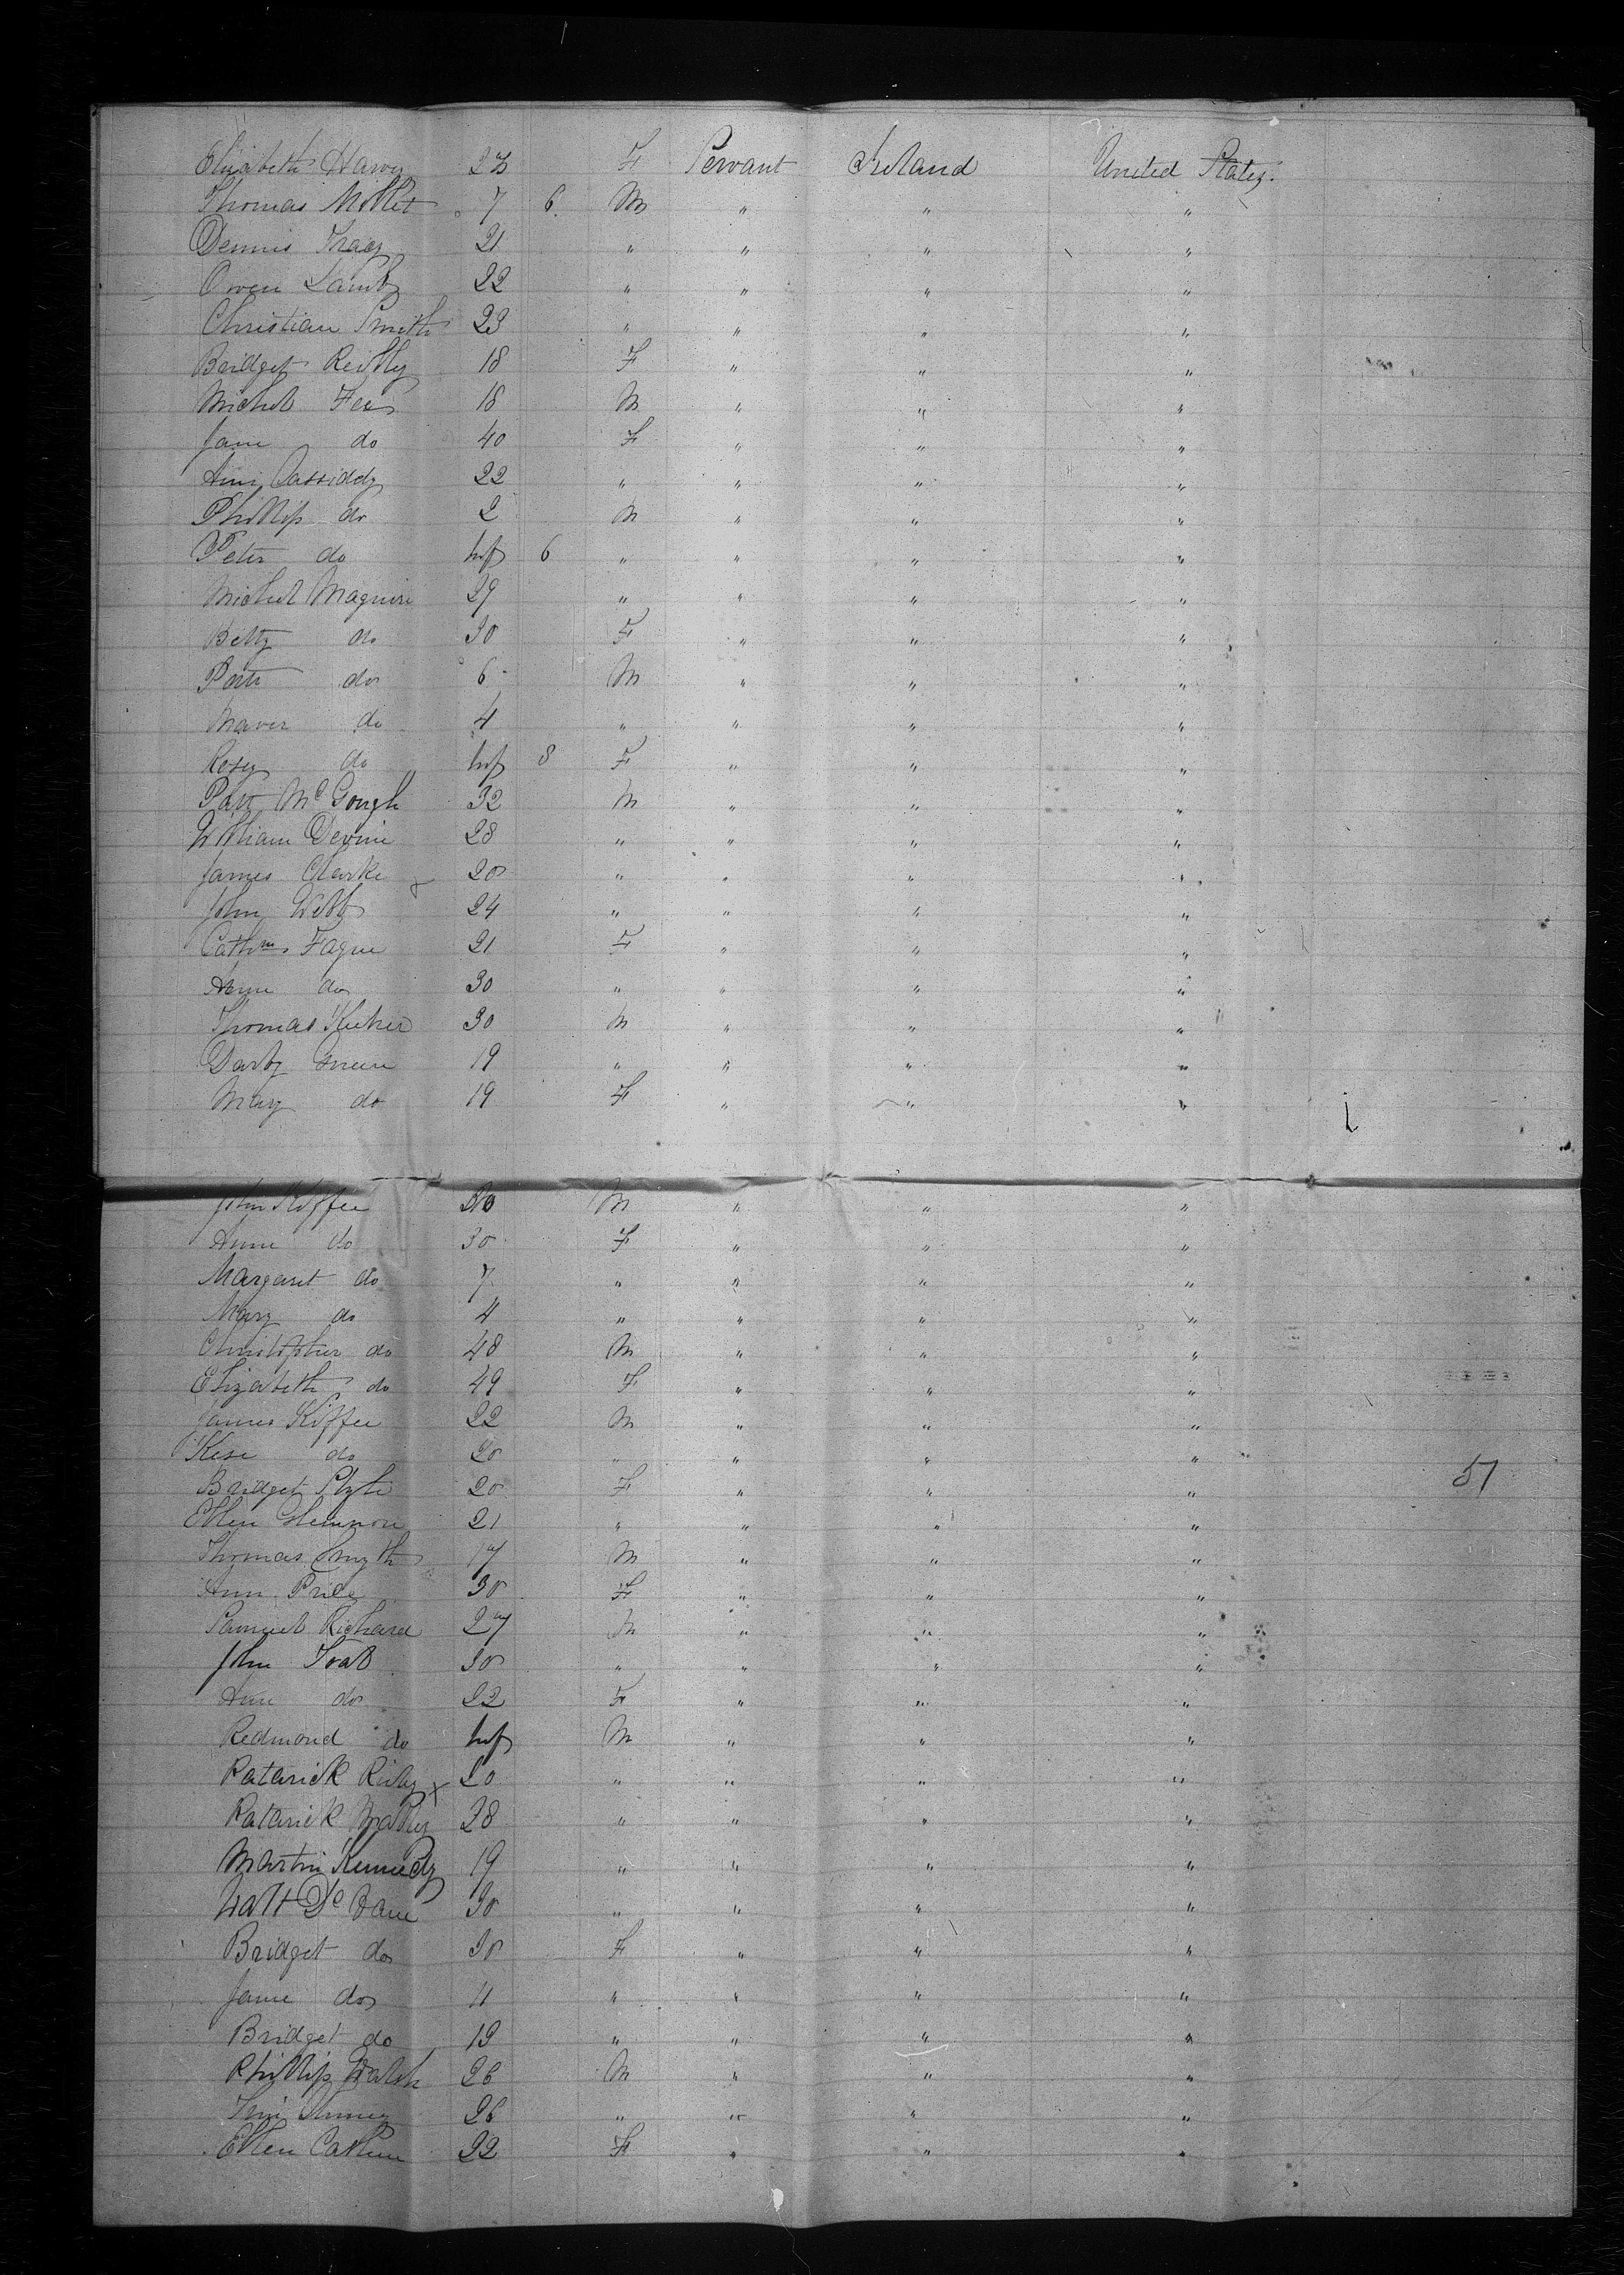 Elizabeth Harvy 23 F Servant Ireland United States.
Thomas Mollet 7 6 M " " "
Dennis Tracy 21 " " " "
Owen Lamb 22 " " " "
Christian Smith 23 " " " "
Bridget Reilly 18 F " " "
Michel Fee 18 M " " "
Jane do 40 F " " "
Ann Cassiddy 22 " " " "
Phillip do 2 M " " "
Peter do Inf 6 " " " "
Michel Maguire 29 " " " "
Betty do 30 F " " "
Patt do 6 M " " "
do 4 " " " "
Rosey do Inf 8 F " " "
Patt McGough 32 M " " "
William Devine 28 " " " "
James Clarke 20 " " " "
John Webb 24 " " " "
Cathne Fague 21 F " " "
Anne do 30 " " " "
Thomas 30 M " " "
Darby Green 19 " " " "
Mary do 19 F " " "
John Kiffee M " " "
Anne do 30 F " " "
Margaret do 7 " " " "
Mary do 4 " " " "
Christopher do 48 M " " "
Elizabeth do 49 F " " "
James Kiffee 22 M " " "
do 20 " " " "
Bridget 20 F " " " 51
Ellen Glennon 21 " " " "
Thomas Smyth 17 M " " "
Ann Price 30 F " " "
Samuel Richard 27 M " " "
John Toal 30 " " " "
Ann do 22 F " " "
Redmond do Inf M " " "
Patarick Rielly x 20 " " " "
Patarick Malley 28 " " " "
Martin Kennedy 19 " " " "
Watt De Vane 30 " " " "
Bridget do 30 F " " "
Jane do 11 " " " "
Bridget do 19 " " " "
Phillip Walsh 26 M " " "
26 " " " "
Ellen 22 F " " "